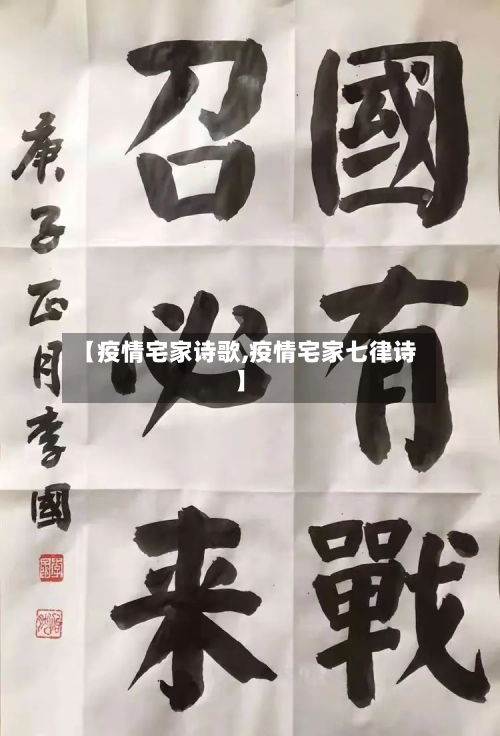 國有戰
召必来
庚子正月李國
【疫情宅家诗歌,疫情宅家七律诗
】